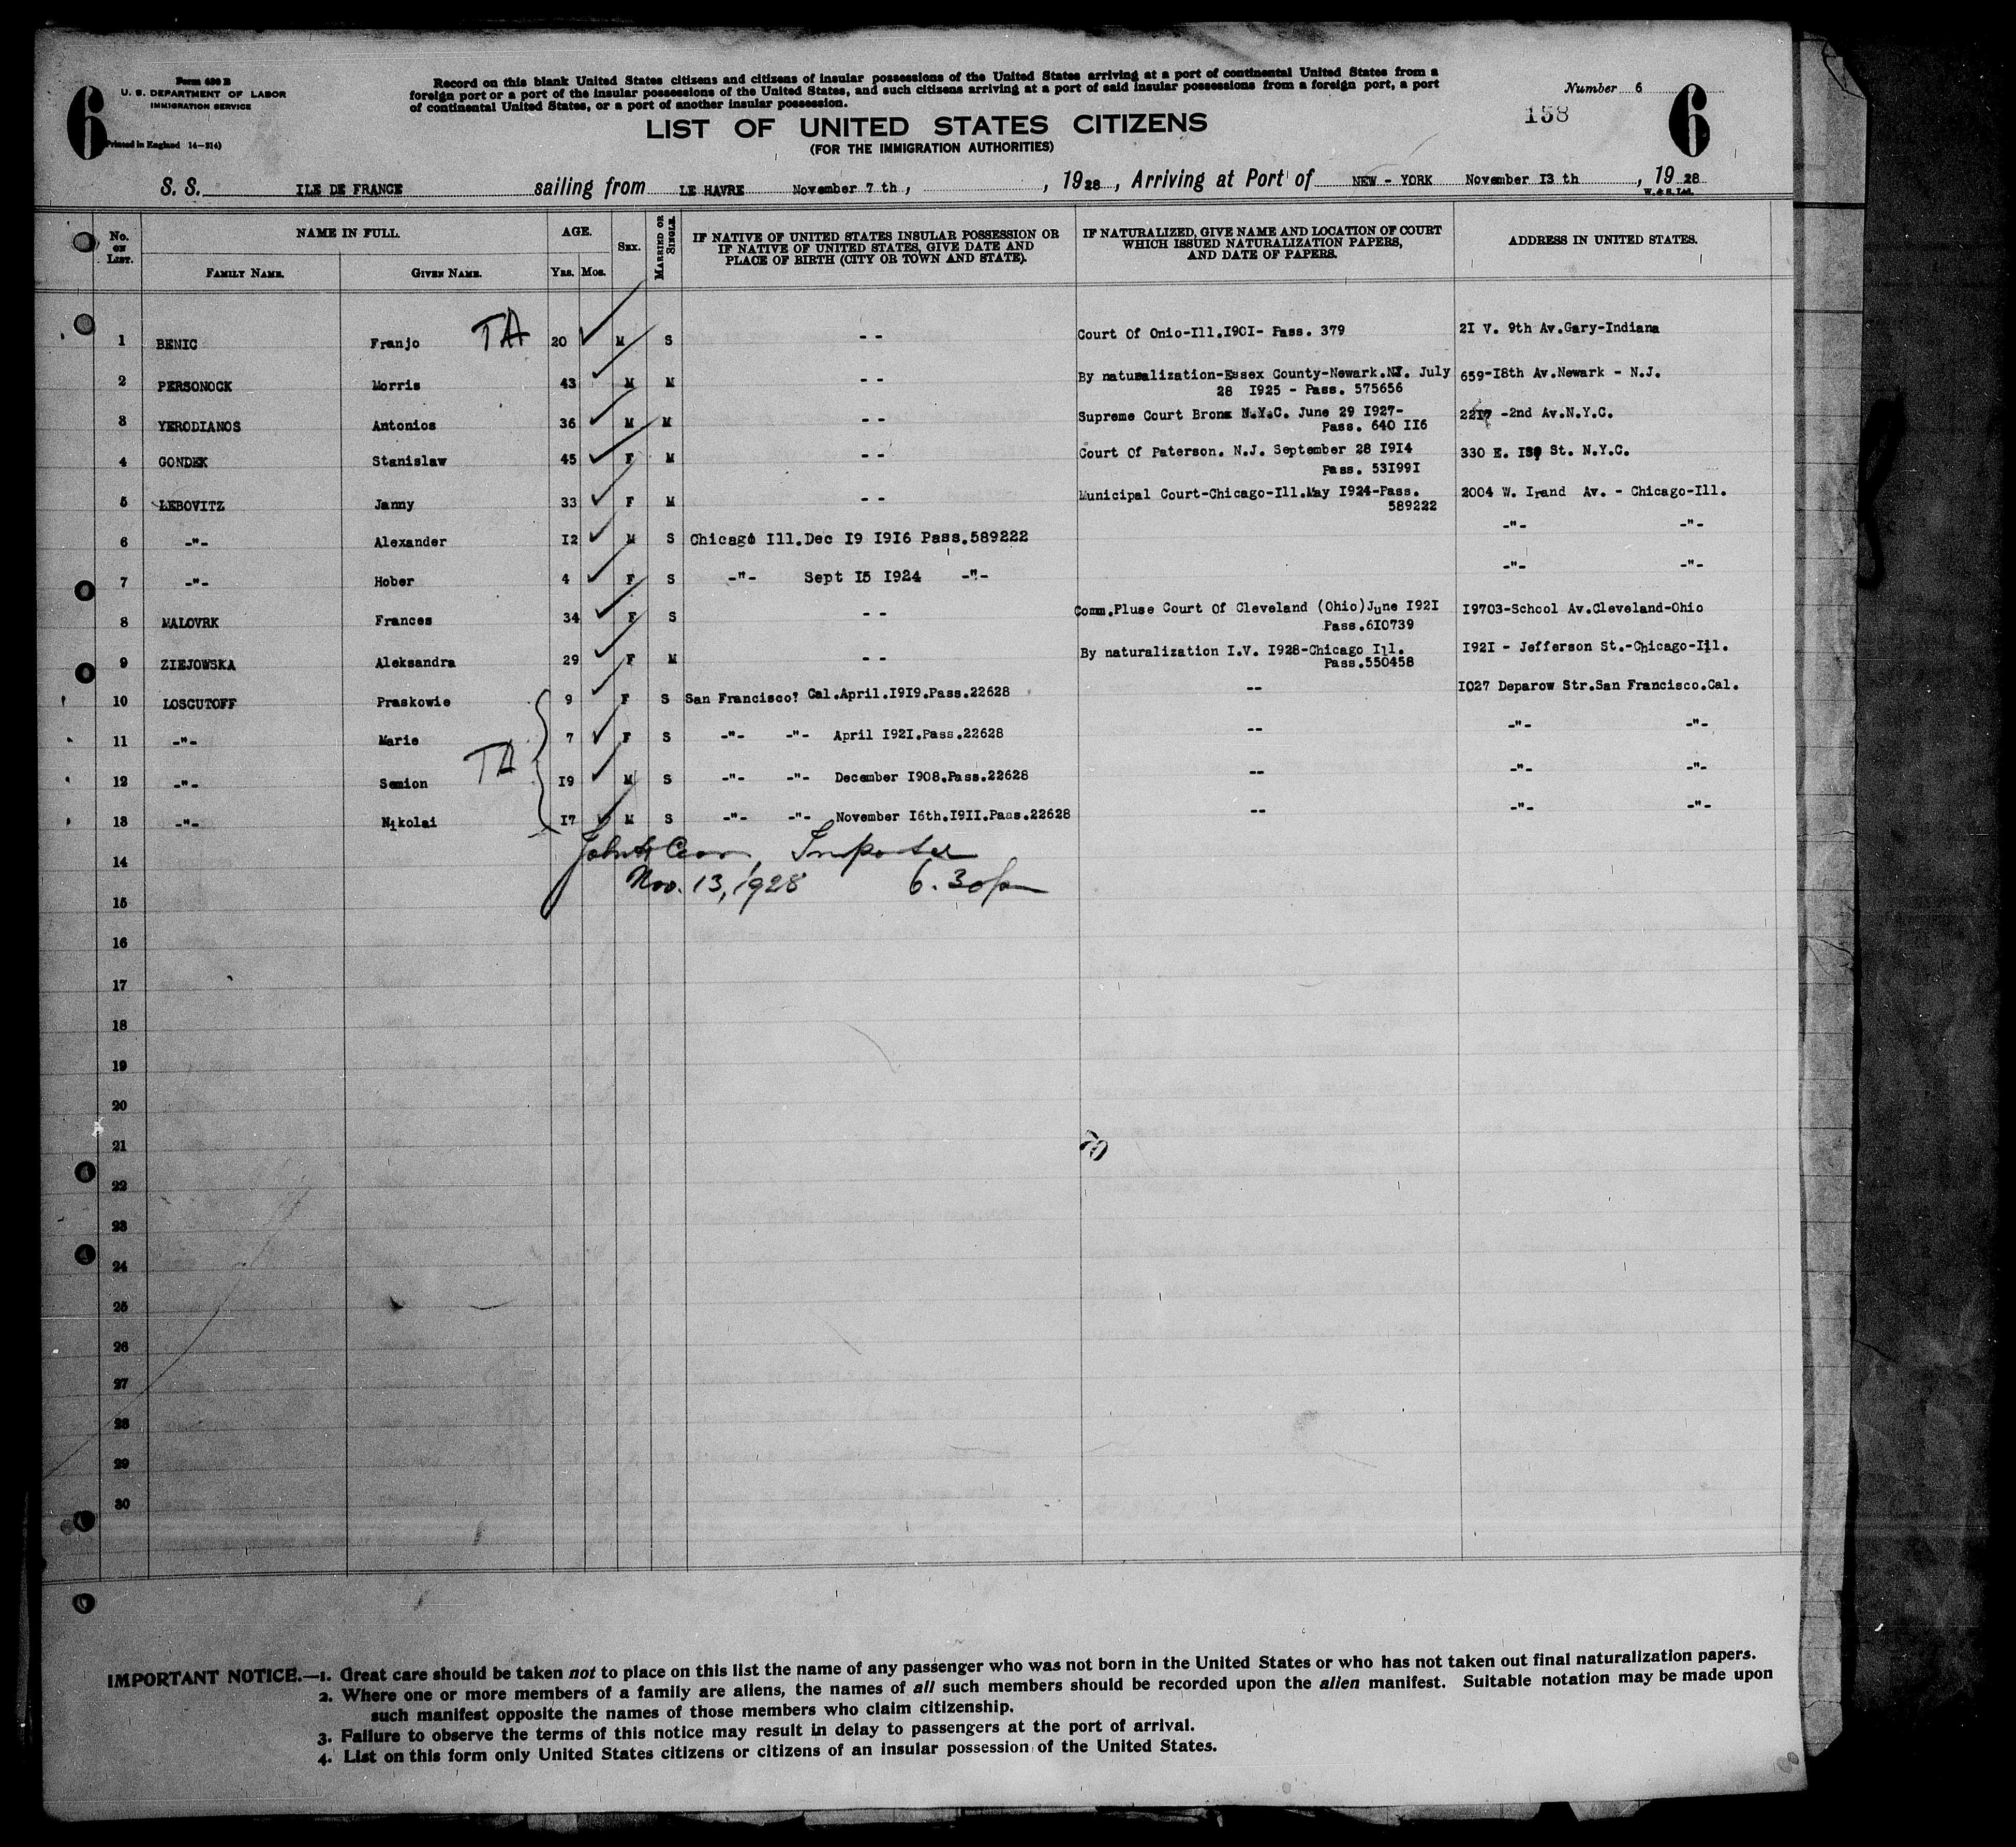 6
Form 630 B
U. S. DEPARTMENT OF LABOR
IMMIGRATION SERVICE
Printed in England 14—314)
Record on this blank United States citizens and citizens of insular possessions of the United States arriving at a port of continental United States from a
foreign port or a port of the insular possessions of the United States, and such citizens arriving at a port of said insular possessions from a foreign port, a port
of continental United States, or a port of another insular possession.
LIST OF UNITED STATES CITIZENS
(FOR THE IMMIGRATION AUTHORITIES)
Number 6
158
6
S. S. ILE DE FRANCE sailing from LE HAVRE November 7 th , , 1928 , Arriving at Port of NEW - YORK November I3 th , 19 28
W. & S. Ltd.
No. ON LIST. NAME IN FULL. AGE. SEX. MARRIED OR SINGLE. IF NATIVE OF UNITED STATES INSULAR POSSESSION OR IF NATIVE OF UNITED STATES, GIVE DATE AND PLACE OF BIRTH (CITY OR TOWN AND STATE). IF NATURALIZED, GIVE NAME AND LOCATION OF COURT WHICH ISSUED NATURALIZATION PAPERS, AND DATE OF PAPERS. ADDRESS IN UNITED STATES.
FAMILY NAME. GIVEN NAME. YRS. MOS.
1 BENIC Franjo TA 20 M S - - Court Of Onio-Ill.I90I- Pass. 379 2I V. 9th Av.Gary-Indiana
2 PERSONOCK Morris 43 M M - - By natuealization-Essex County-Newark.NJ. July 659-I8th Av.Newark - N.J.
28 I925 - Pass. 575656
3 YERODIANOS Antonios 36 M M - - Supreme Court Bronx N.Y.C. June 29 I927- 22I7 -2nd Av.N.Y.C.
Pass. 640 II6
4 GONDEK Stanislaw 45 F M - - Court Of Paterson. N.J. September 28 I9I4 330 E. St. N.Y.C.
Pass. 53I99I
5 LEBOVITZ Janny 33 F M - - Municipal Court-Chicago-Ill.May I924-Pass. 2004 W. Irand Av. - Chicago-Ill.
589222
6 -"- Alexander I2 M S Chicago Ill.Dec I9 I9I6 Pass.589222 -"- -"-
7 -"- Hober 4 F S -"- Sept I5 I924 -"- -"- -"-
8 MALOVRK Frances 34 F S - - Comm.Pluse Court Of Cleveland (Ohio)June I92I I9703-School Av.Cleveland-Ohio
Pass.6I0739
9 ZIEJOWSKA Aleksandra 29 F M - - By naturalization I.V. I928-Chicago Ill. I92I - Jefferson St.-Chicago-Ill.
Pass.550458
10 LOSCUTOFF Praskowie 9 F S San Francisco? Cal.April.I9I9.Pass.22628 -- I027 Deparow Str.San Francisco.Cal.
11 -"- Marie 7 F S -"- -"- April I92I.Pass.22628 -- -"- -"-
12 -"- Semion TA I9 M S -"- -"- December I908.Pass.22628 -- -"- -"-
13 -"- Nikolai I7 M S -"- -"- November I6th.I9II.Pass.22628 -- -"- -"-
14 John
15 Nov. 13, 1928 6.30 pm
16
17
18
19
20
21
22
23
24
25
26
27
28
29
30
IMPORTANT NOTICE.—1. Great care should be taken not to place on this list the name of any passenger who was not born in the United States or who has not taken out final naturalization papers.
2. Where one or more members of a family are aliens, the names of all such members should be recorded upon the alien manifest. Suitable notation may be made upon
such manifest opposite the names of those members who claim citizenship.
3. Failure to observe the terms of this notice may result in delay to passengers at the port of arrival.
4. List on this form only United States citizens or citizens of an insular possession of the United States.